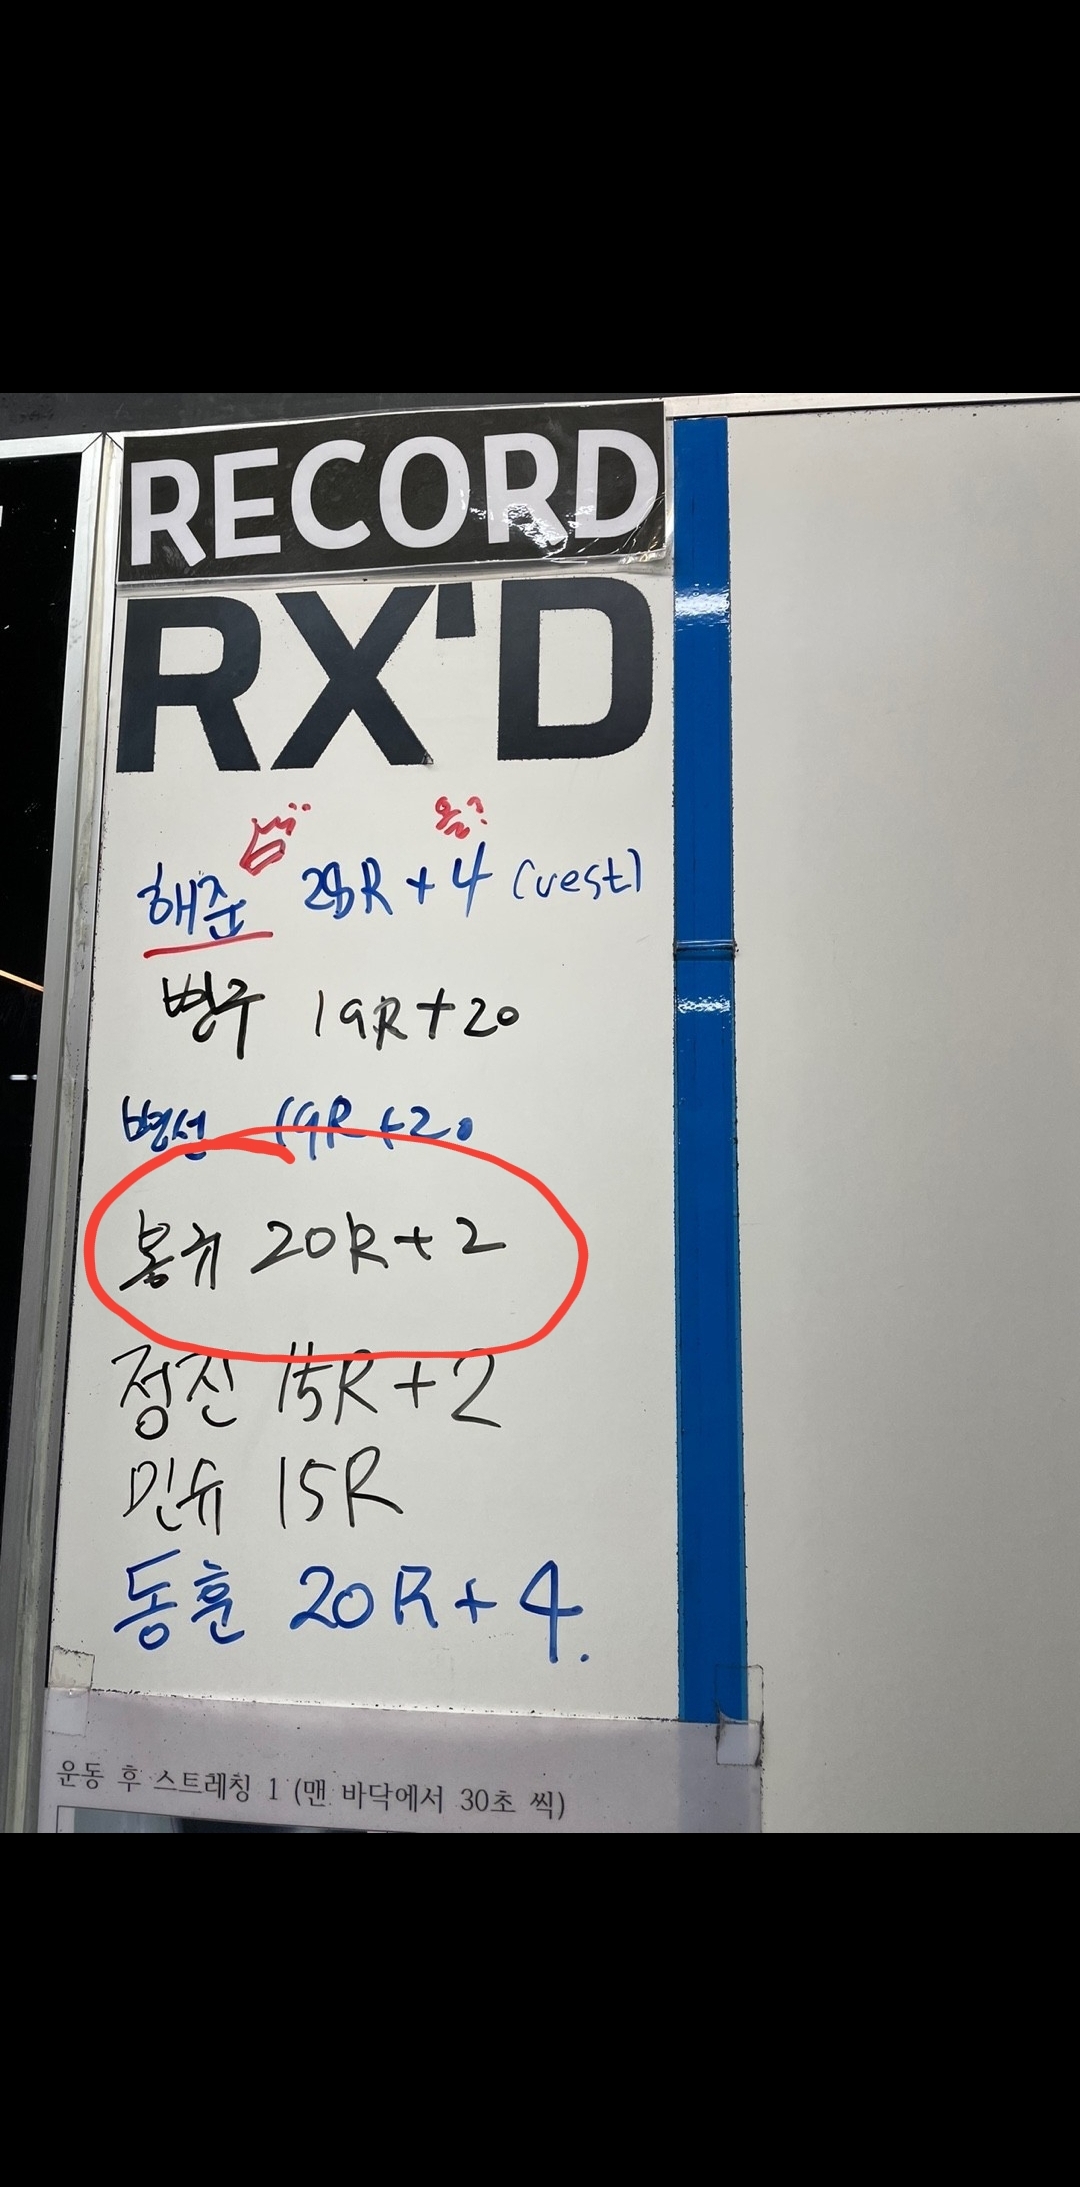 RECORD
RX'D
올?
해준 28R + 4 (vest)
병주 19R + 20
병선 19R + 20
봉규 20R + 2
정진 15R + 2
민규 15R
동훈 20R + 4.
운동 후 스트레칭 1 (맨 바닥에서 30초 씩)